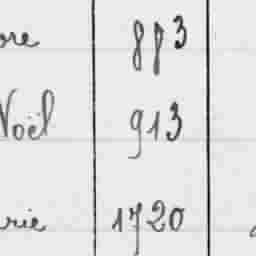 ore 883
Noël 913
rie 1720